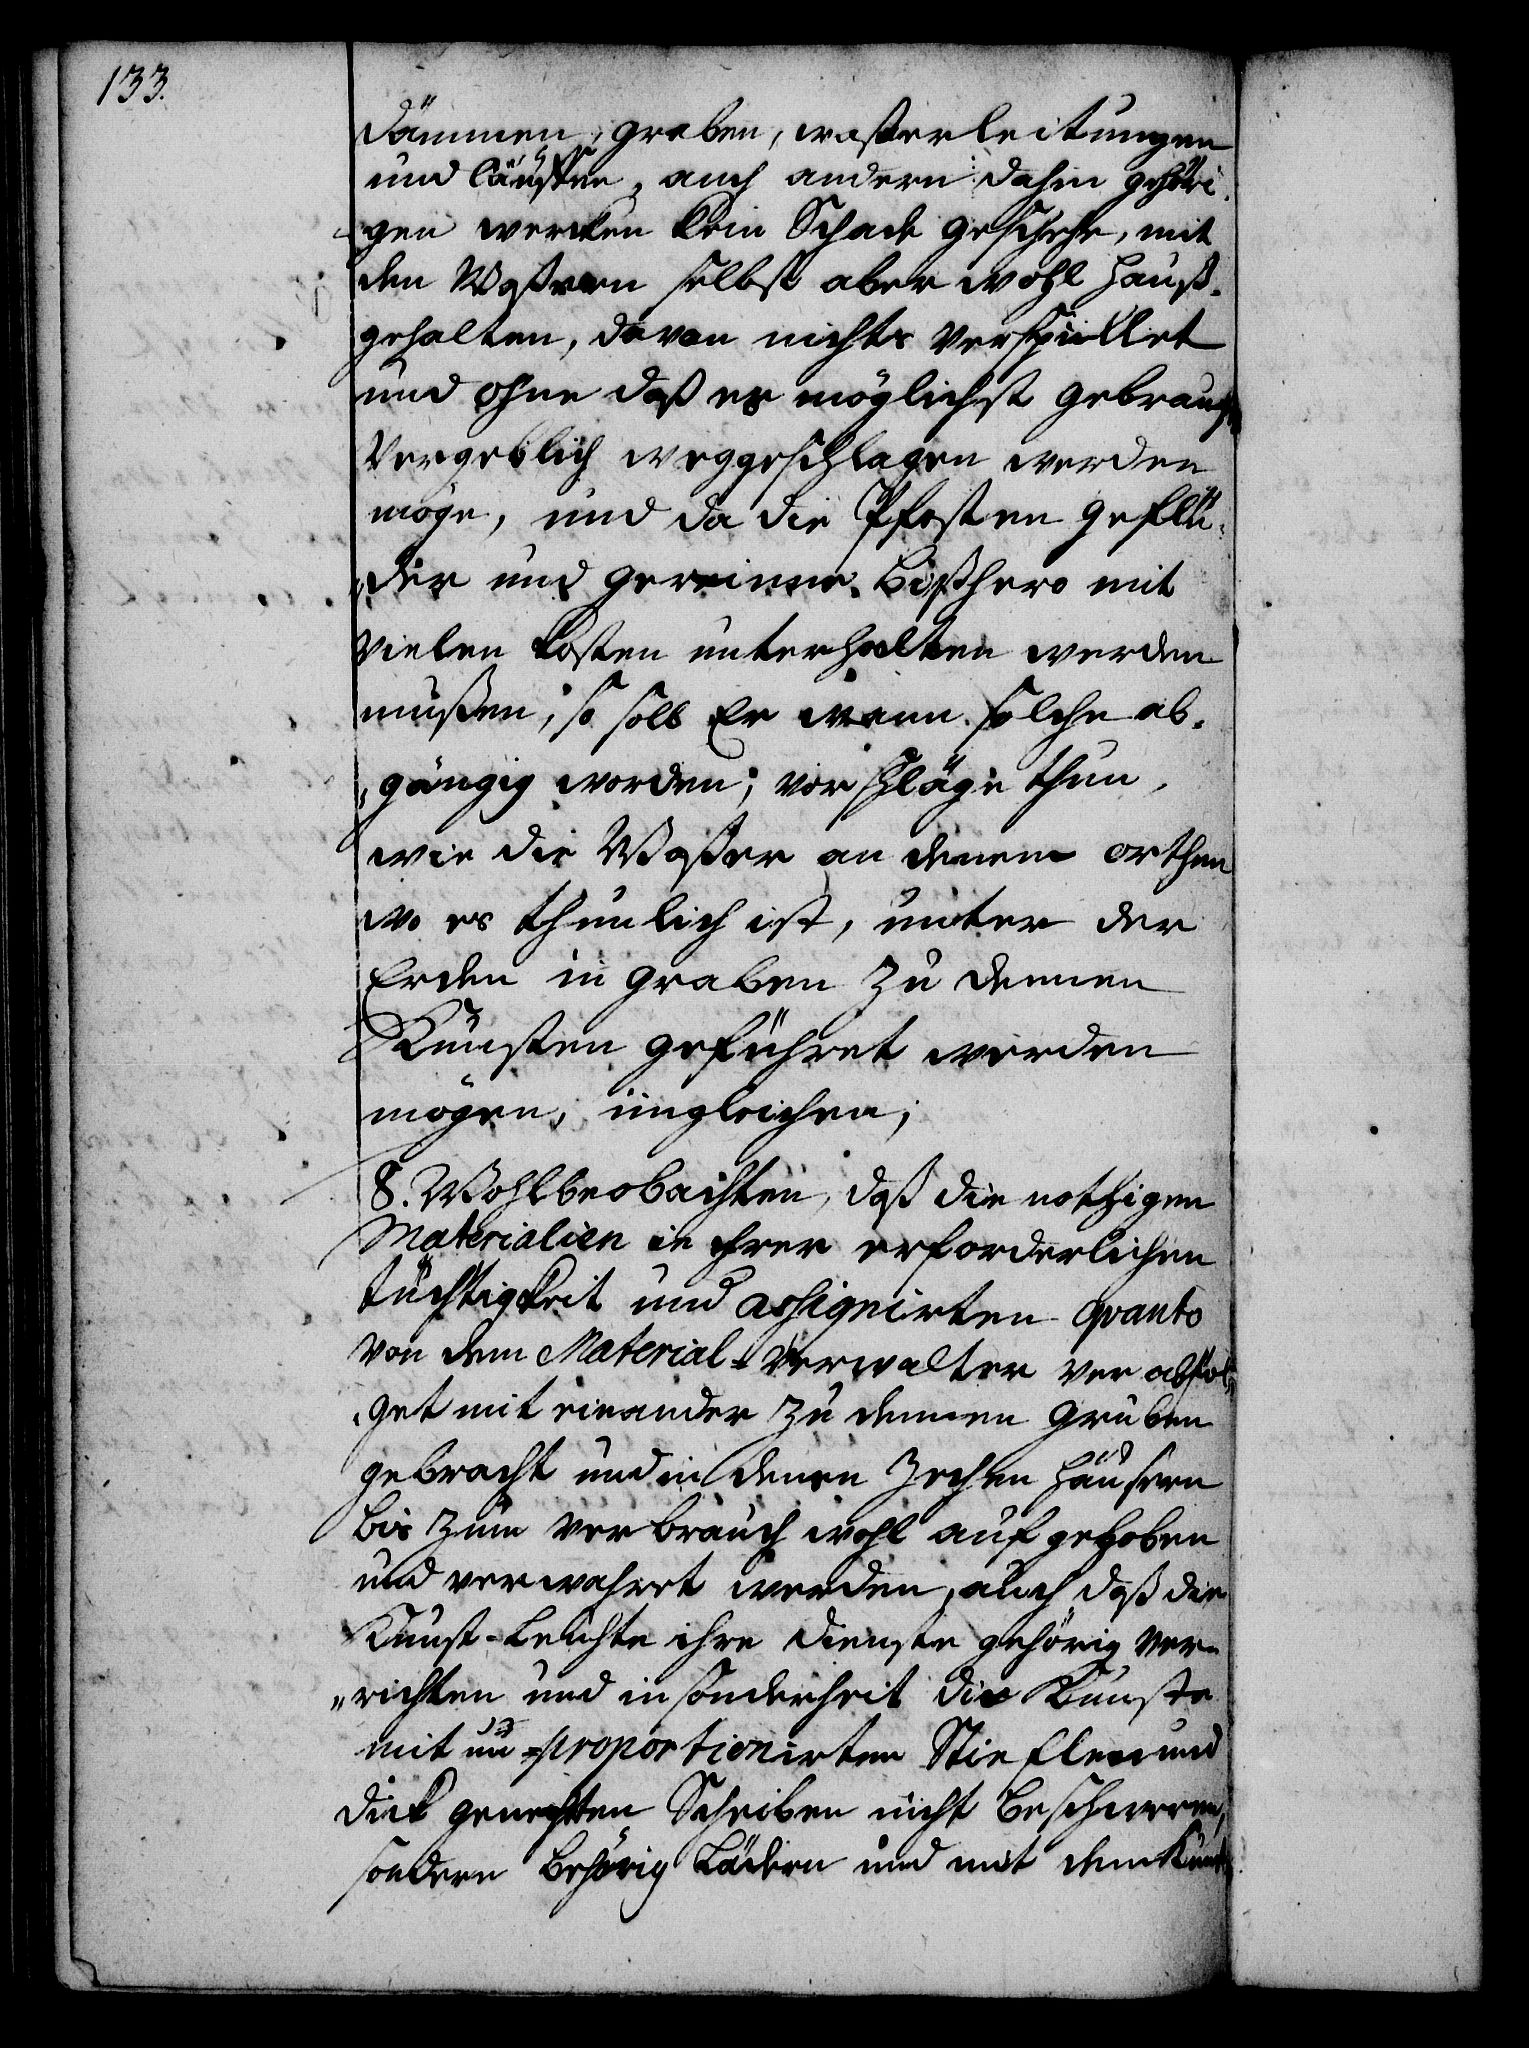 133.
Dämmen, graben, waßerleitungen
und läufften, auch andern dahin gehöri-
gen wercken kein Schade geschehe, mit
den Waßern selbst aber wohl hauß-
gehalten, davon nichts verspillet
und ohne daß es möglichst gebraucht
vergeblich weggeschlagen werden
möge, und da die Pfosten geflü-
der und gerinne bißhero mit
vielen kosten unterhalten werden
mußen, so soll Er wenn solche ab-
gängig worden, vorschläge thun,
wie die Waßer an denen orthen
wo es thunlich ist, unter der
Erden in graben zu denen
Künsten geführet werden
mögen, ingleichen;
8. Wohl beobachten, daß die nothigen
Materialien in ihrer erforderlichen
tüchtigkeit und assignirten quanto
von dem Material-Verwalter verabfol-
get mit einander zu denen Gruben
gebracht und in denen Zechen häusern
bis zum verbrauch wohl aufgehoben
und verwahret werden, auch daß die
Kunst-Leuthe ihre dienste gehörig ver-
richten und in sonderheit die Künste
mit un-proportionirten Stieflen und
dick Scheiben nicht beschweren,
sondern behörig Lädern und mit dem Kunst